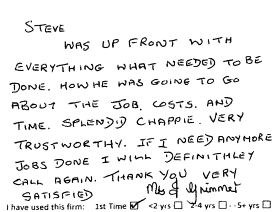 STEVE
WAS UP FRONT WITH
EVERYTHING WHAT NEEDED TO BE
DONE. HOW HE WAS GOING TO GO
ABOUT THE JOB, COSTS, AND
TIME. SPLENDID CHAPPIE. VERY
TRUSTWORTHY. IF I NEED ANYMORE
JOBS DONE I WILL DEFINITHLEY
CALL AGAIN. THANK YOU VERY
SATISFIED Mrs J Grimmer
I have used this firm: 1st Time <2 yrs 2-4 yrs 5+ yrs